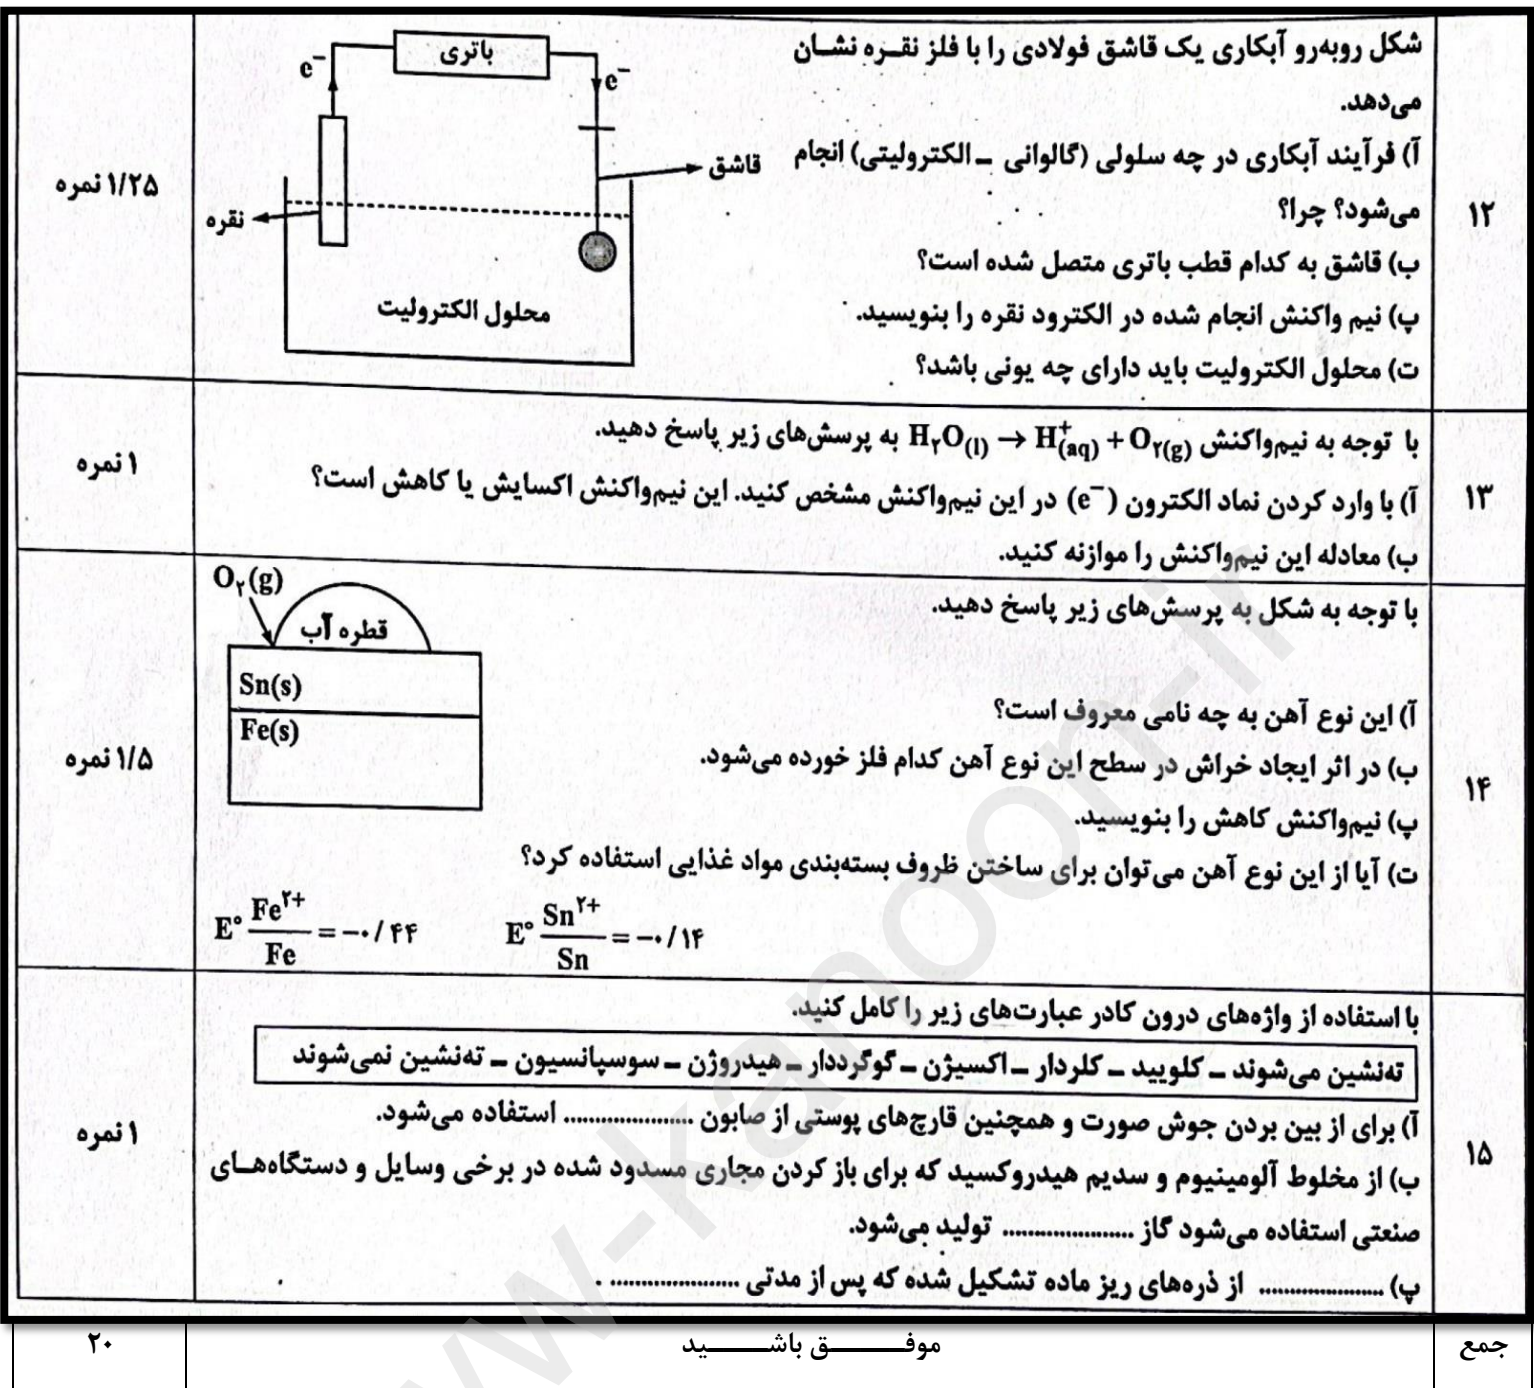 ۱۲
شکل روبه‌رو آبکاری یک قاشق فولادی را با فلز نقـره نشـان
می‌دهد.
آ) فرآیند آبکاری در چه سلولی (گالوانی ـ الکترولیتی) انجام
می‌شود؟ چرا؟
ب) قاشق به کدام قطب باتری متصل شده است؟
پ) نیم واکنش انجام شده در الکترود نقره را بنویسید.
ت) محلول الکترولیت باید دارای چه یونی باشد؟
باتری
e⁻
e⁻
قاشق
نقره
محلول الکترولیت
۱/۲۵ نمره
۱۳
با توجه به نیم‌واکنش H۲O(l) → H⁺(aq) + O۲(g) به پرسش‌های زیر پاسخ دهید.
آ) با وارد کردن نماد الکترون (e⁻) در این نیم‌واکنش مشخص کنید. این نیم‌واکنش اکسایش یا کاهش است؟
ب) معادله این نیم‌واکنش را موازنه کنید.
۱ نمره
۱۴
با توجه به شکل به پرسش‌های زیر پاسخ دهید.
آ) این نوع آهن به چه نامی معروف است؟
ب) در اثر ایجاد خراش در سطح این نوع آهن کدام فلز خورده می‌شود.
پ) نیم‌واکنش کاهش را بنویسید.
ت) آیا از این نوع آهن می‌توان برای ساختن ظروف بسته‌بندی مواد غذایی استفاده کرد؟
O۲(g)
قطره آب
Sn(s)
Fe(s)
E° Fe²⁺/Fe = −۰/۴۴ E° Sn²⁺/Sn = −۰/۱۴
۱/۵ نمره
۱۵
با استفاده از واژه‌های درون کادر عبارت‌های زیر را کامل کنید.
ته‌نشین می‌شوند ـ کلویید ـ کلردار ـ اکسیژن ـ گوگرددار ـ هیدروژن ـ سوسپانسیون ـ ته‌نشین نمی‌شوند
آ) برای از بین بردن جوش صورت و همچنین قارچ‌های پوستی از صابون .................... استفاده می‌شود.
ب) از مخلوط آلومینیوم و سدیم هیدروکسید که برای باز کردن مجاری مسدود شده در برخی وسایل و دستگاه‌هـای
صنعتی استفاده می‌شود گاز .................... تولید می‌شود.
پ) .................... از ذره‌های ریز ماده تشکیل شده که پس از مدتی .................... .
۱ نمره
جمع
موفـــــــق باشـــــــید
۲۰
w-kanoon-ir